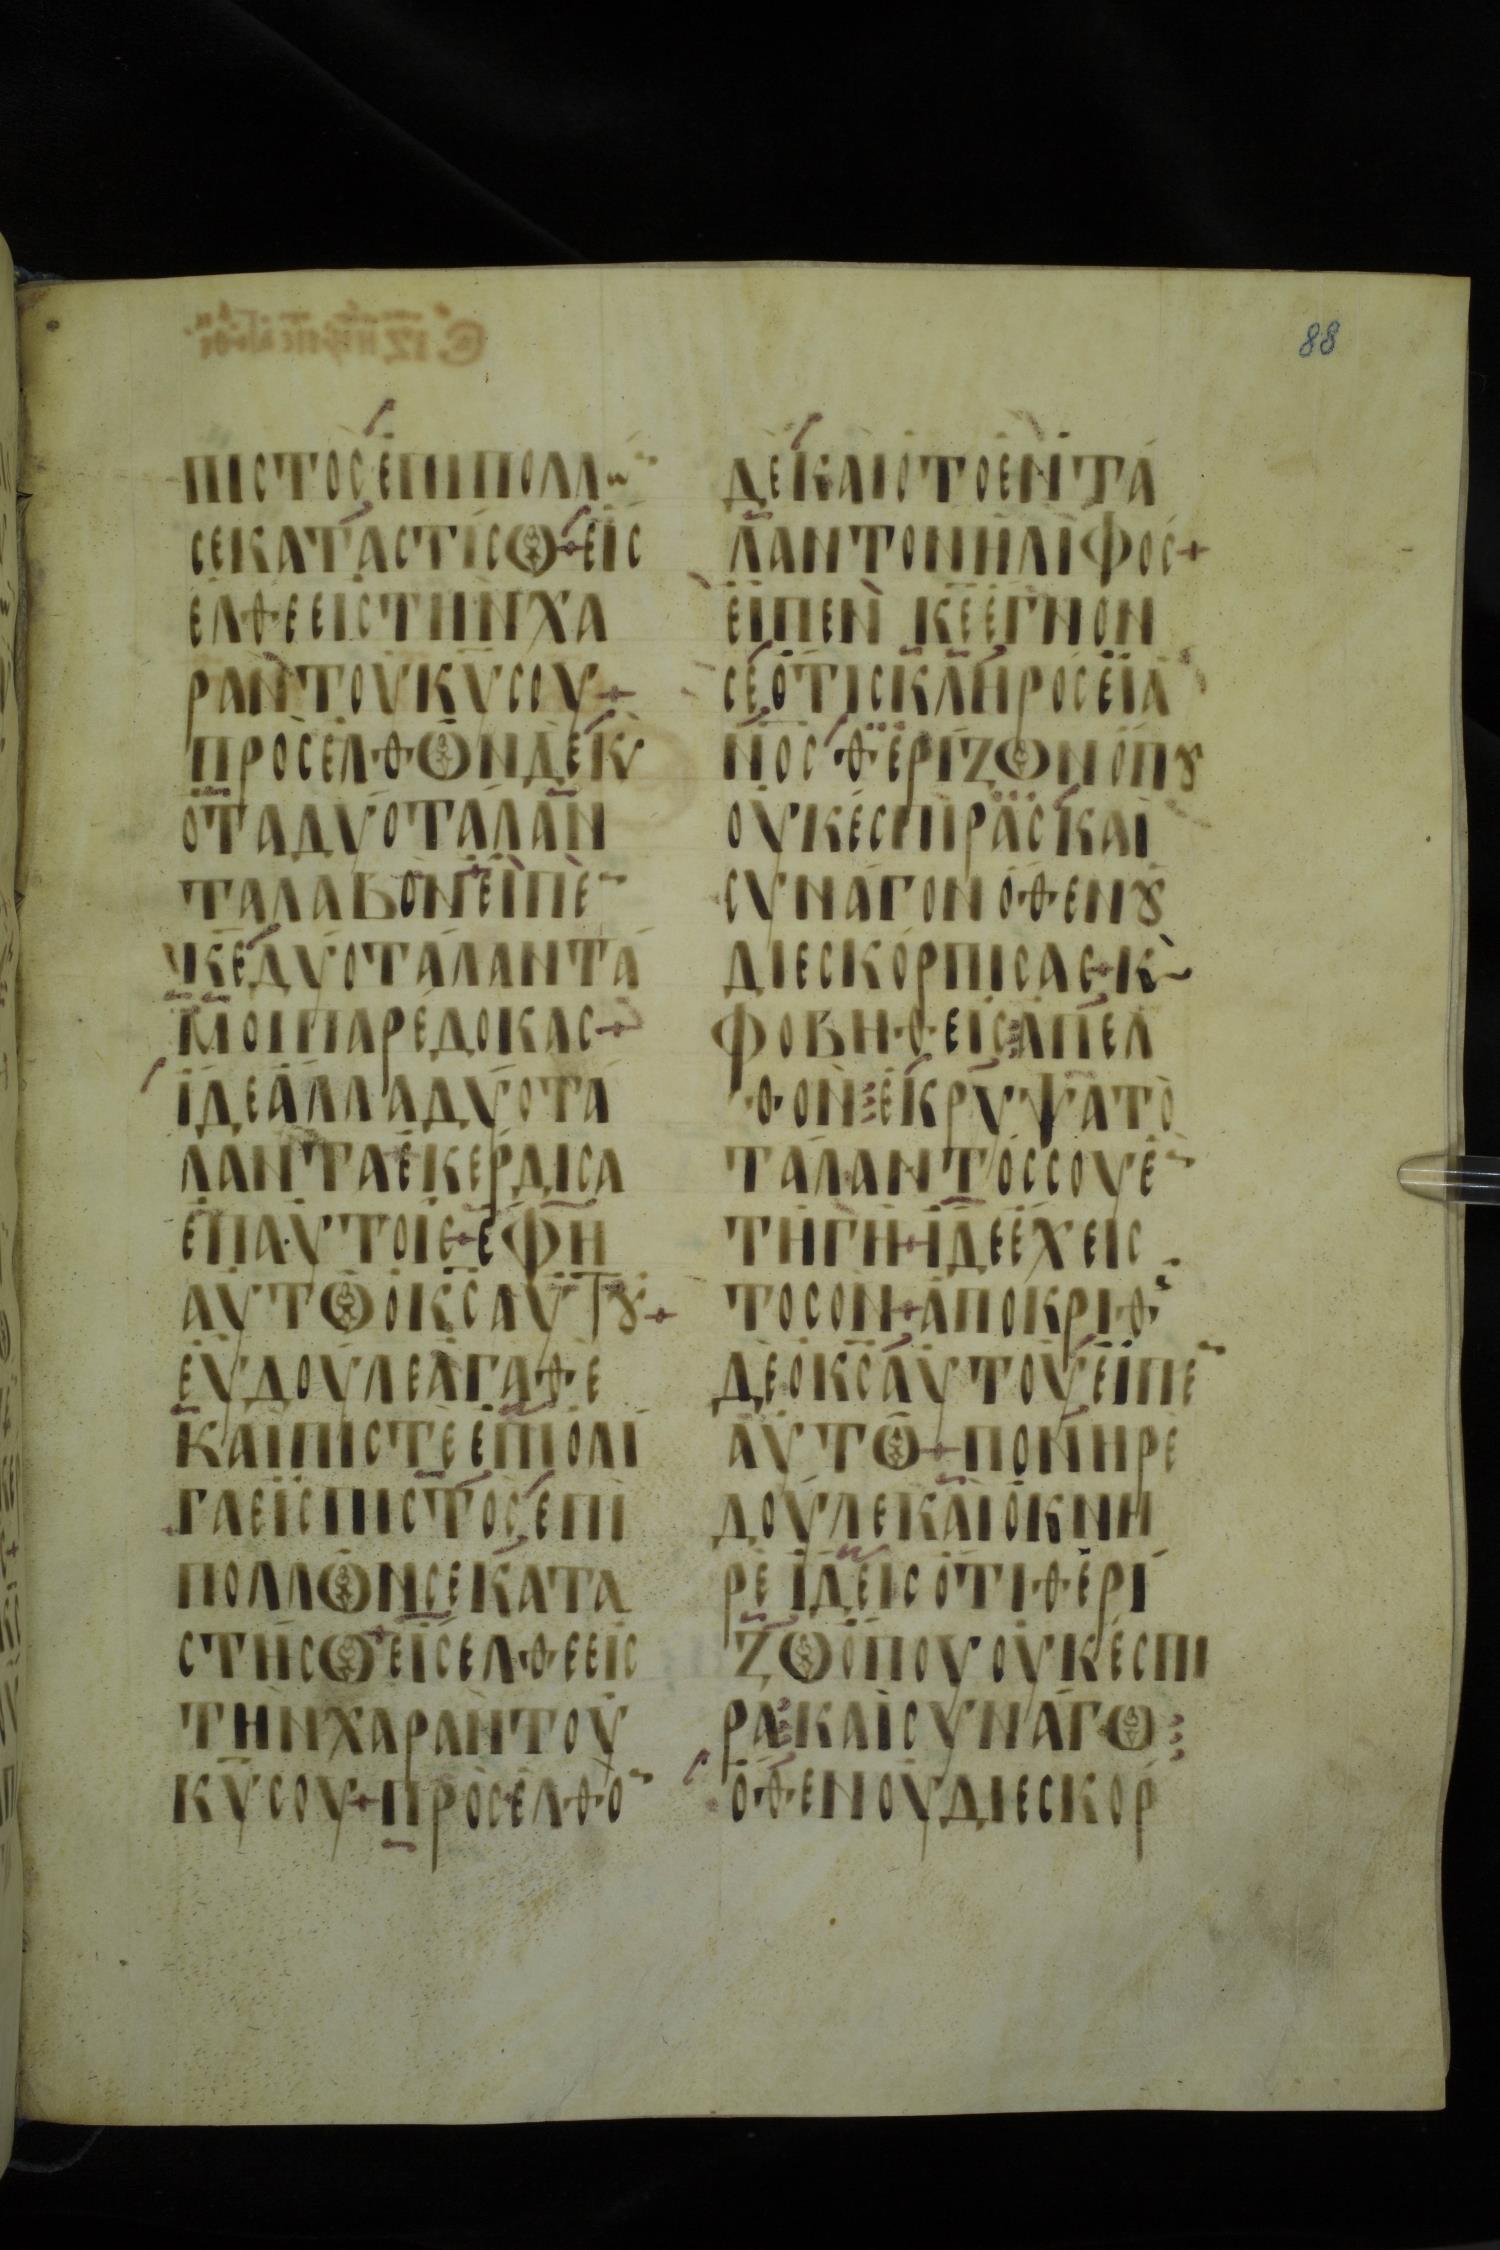 88
ΠΙΣΤΟΣ ΕΠΙ ΠΟΛΛ
ΣΕ ΚΑΤΑΣΤΙΣΩ + ΕΙΣ
ΕΛΘΕ ΕΙΣ ΤΗΝ ΧΑ
ΡΑΝ ΤΟΥ ΚΥ ΣΟΥ +
ΠΡΟΣΕΛΘΩΝ ΔΕ Κ
Ο ΤΑ ΔΥΟ ΤΑΛΑΝ
ΤΑ ΛΑΒΟΝ + ΕΙΠΕ
ΚΕ ΔΥΟ ΤΑΛΑΝΤΑ
ΜΟΙ ΠΑΡΕΔΟΚΑΣ +
ΙΔΕ ΑΛΛΑ ΔΥΟ ΤΑ
ΛΑΝΤΑ ΕΚΕΡΔΙΣΑ
ΕΠ ΑΥΤΟΙΣ + ΕΦΗ
ΑΥΤΩ Ο ΚΣ ΑΥΤȢ +
ΕΥ ΔΟΥΛΕ ΑΓΑΘΕ
ΚΑΙ ΠΙΣΤΕ ΕΠΙ ΟΛΙ
ΓΑ ΕΙΣ ΠΙΣΤΟΣ ΕΠΙ
ΠΟΛΛΩΝ ΣΕ ΚΑΤΑ
ΣΤΗΣΩ + ΕΙΣΕΛΘΕ ΕΙΣ
ΤΗΝ ΧΑΡΑΝ ΤΟΥ
ΚΥ ΣΟΥ + ΠΡΟΣΕΛΘΟ
ΔΕ ΚΑΙ Ο ΤΟ ΕΝ ΤΑ
ΛΑΝΤΟΝ ΗΛΙΦΟΣ +
ΕΙΠΕΝ ΚΕ ΕΓΝΟΝ
ΣΕ ΟΤΙ ΣΚΛΗΡΟΣ ΕΙ Α
ΝΟΣ ΘΕΡΙΖΩΝ ΟΠȢ
ΟΥΚ ΕΣΠΙΡΑΣ ΚΑΙ
ΣΥΝΑΓΟΝ ΟΘΕΝ Ȣ
ΔΙΕΣΚΟΡΠΙΣΑΣ + Κ
ΦΟΒΗΘΕΙΣ ΑΠΕΛ
ΘΟΝ ΕΚΡΥΨΑ ΤΟ
ΤΑΛΑΝΤΟΣ ΣΟΥ Ε
ΤΗ ΓΗ + ΙΔΕ ΕΧΕΙΣ
ΤΟ ΣΟΝ + ΑΠΟΚΡΙΘ
ΔΕ Ο ΚΣ ΑΥΤΟΥ ΕΙΠΕ
ΑΥΤΩ + ΠΟΝΗΡΕ
ΔΟΥΛΕ ΚΑΙ ΟΚΝΗ
ΡΕ ΙΔΕΙΣ ΟΤΙ ΘΕΡΙ
ΖΩ ΟΠΟΥ ΟΥΚ ΕΣΠΙ
ΡΑ ΚΑΙ ΣΥΝΑΓΩ
ΟΘΕΝ ΟΥ ΔΙΕΣΚΟΡ